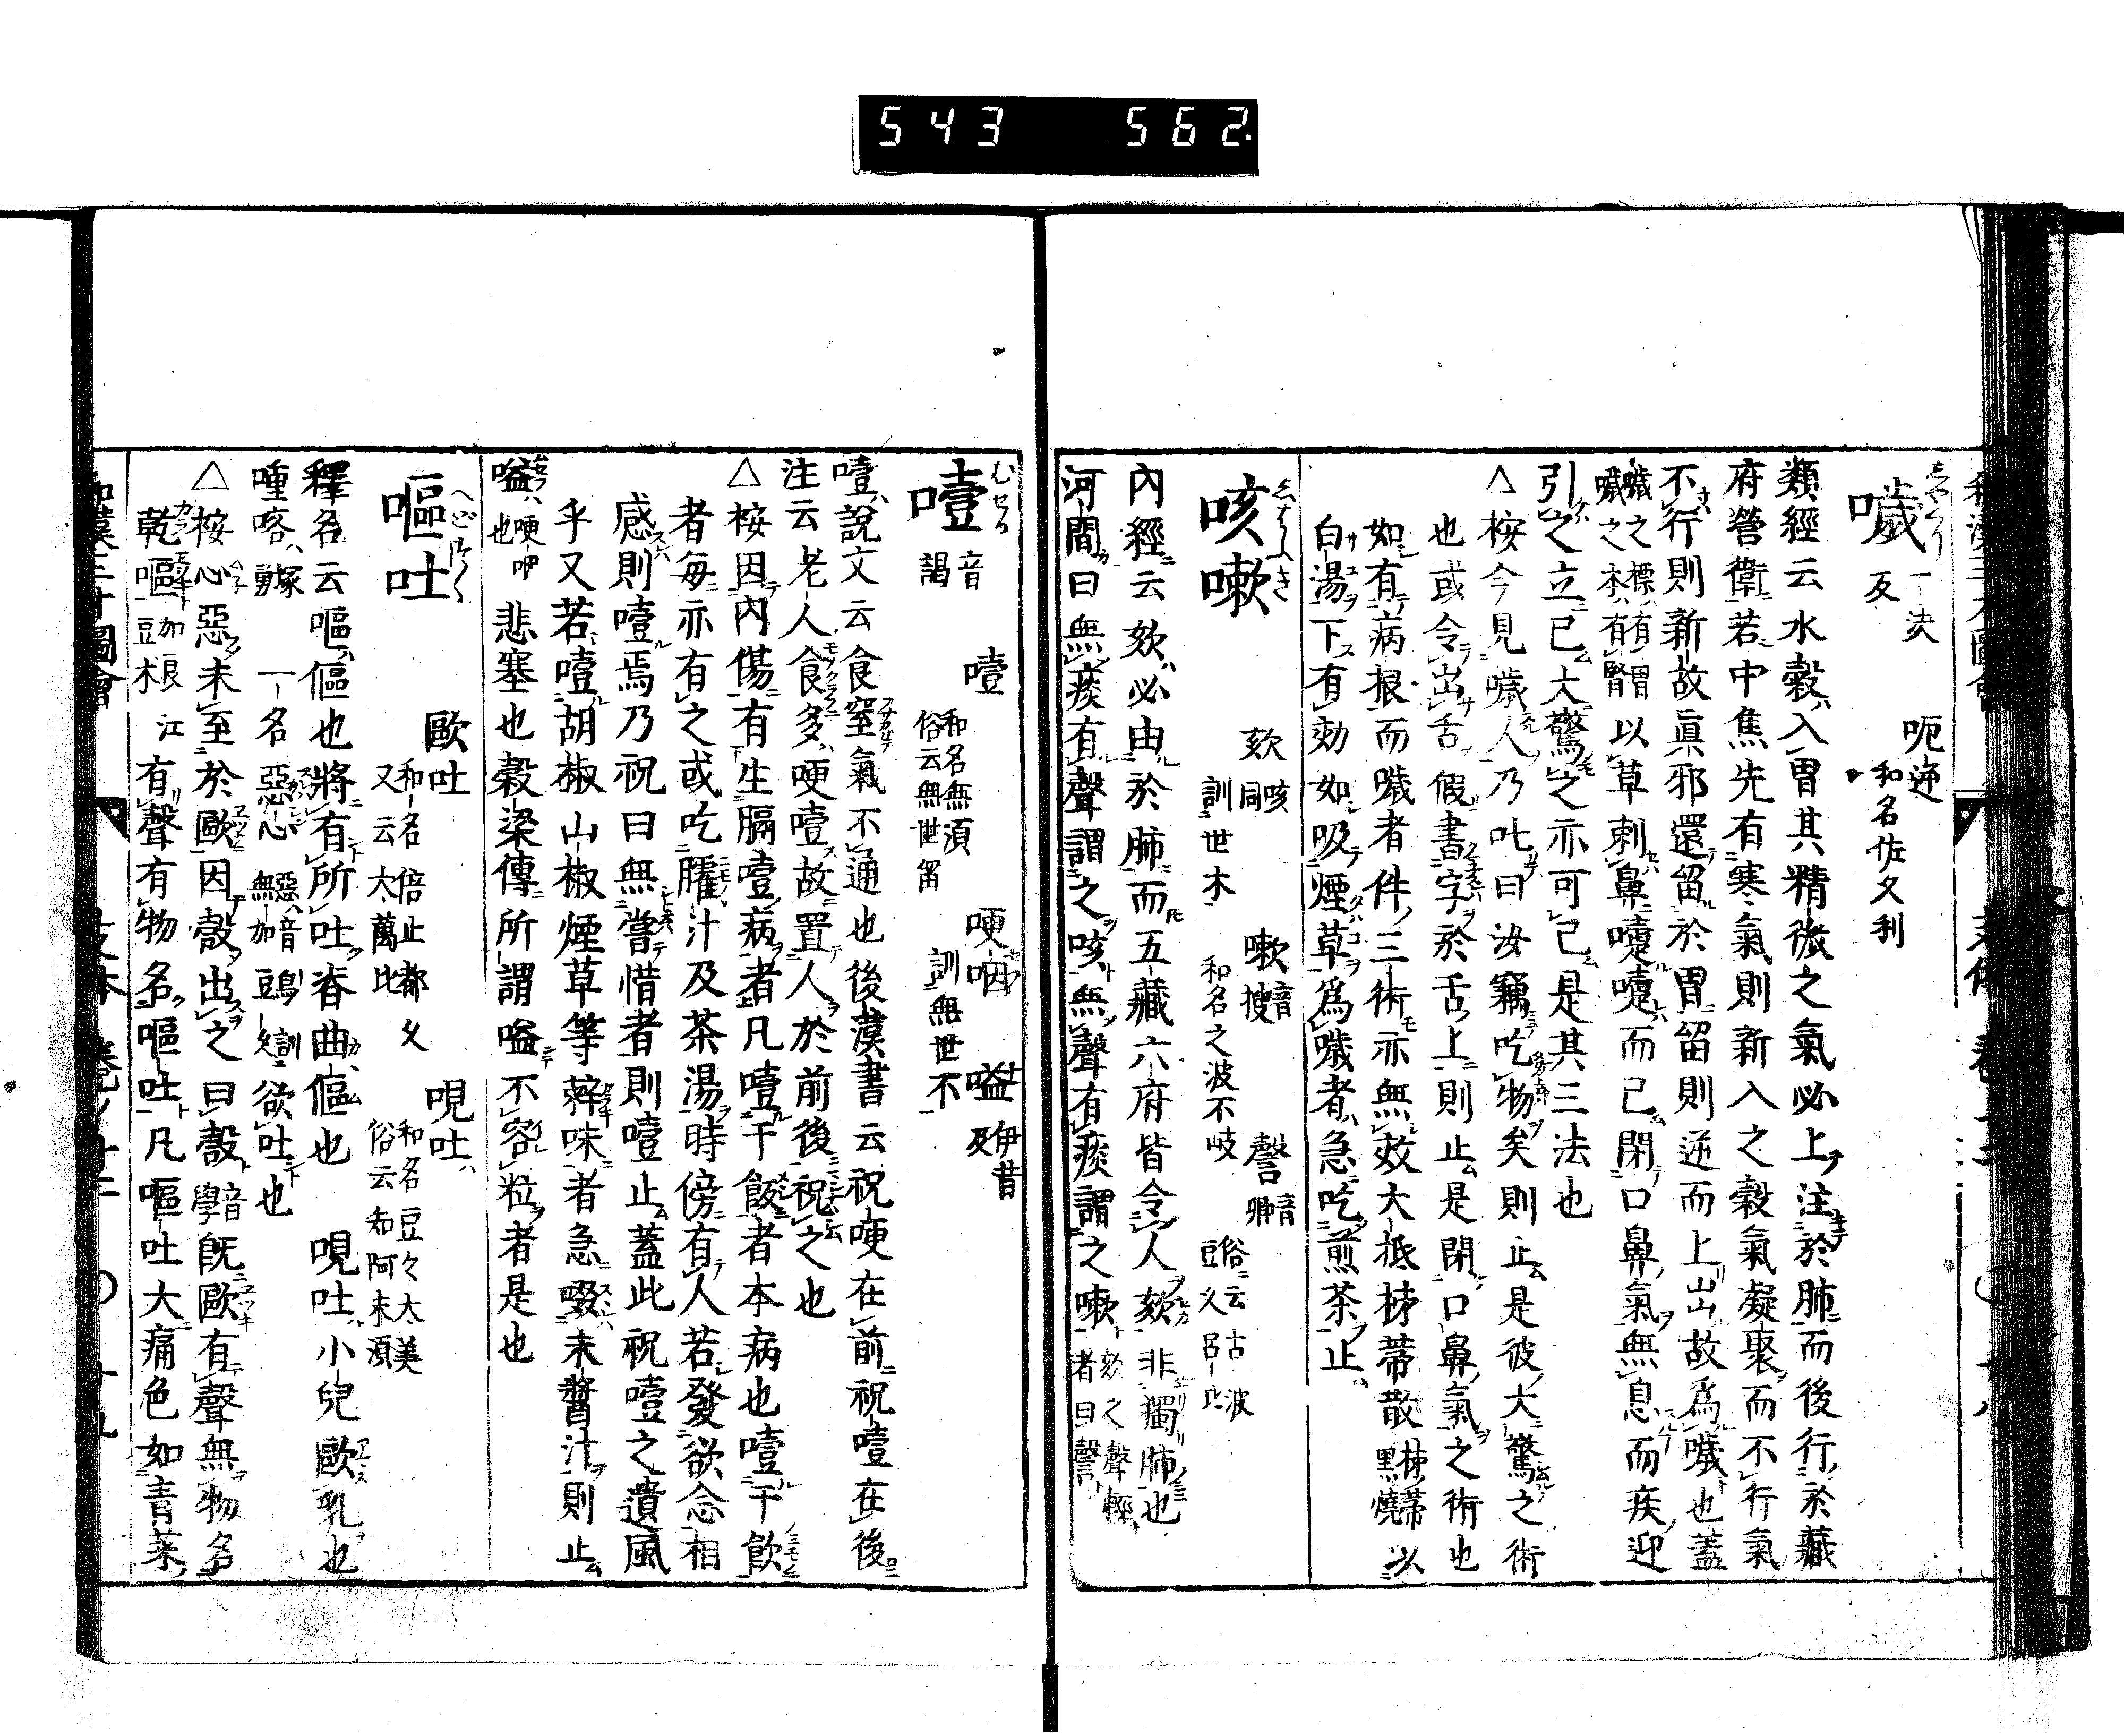 543 562
噦 一决 呃逆 和名佐久利
反
類經云水穀入胃其精微之氣必上注於肺而後行於藏
府營衛若中焦先有寒氣則新入之穀氣凝聚而不行氣
不行則新故眞邪還留於胃留則逆而上出故爲噦也蓋
噦之標有胃
噦之本有腎 以草刺鼻嚏嚏而已閉口鼻氣無息而疾迎
引之立已大驚之亦可已是其三法也
△桉今見噦人乃叱曰汝竊吃物矣則止是彼大驚之術
也或令出舌假書字於舌上則止是閉口鼻氣之術也
如有病根而噦者件三術亦無效大抵柹蔕散 柹蔕黑燒 以
白湯下有効如吸煙草爲噦者急吃煎茶止
咳嗽 欬 咳同 訓世木 嗽 音搜 和名之波不岐 謦 音卿 俗云古波豆久呂比
內經云欬必由於肺而五藏六府皆令人欬非獨肺也
河間曰無痰有聲謂之咳無聲有痰謂之嗽 欬之聲輕者曰謦
噎 音謁 噎 和名無須 俗云無世留 哽咽 訓無世不 嗌 伊昔反
噎說文云食窒氣不通也後漢書云祝哽在前祝噎在後
注云老人食多哽噎故置人於前後祝之也
△桉因內傷有生膈噎病者凡噎于飯者本病也噎于飲
者每亦有之或吃臛汁及茶湯時傍有人若發欲念相
感則噎焉乃祝曰無嘗惜者則噎止蓋此祝噎之遺風
乎又若噎胡椒山椒煙草等辢味者急啜未醬汁則止
嗌 哽咽也 悲塞也穀梁傳所謂嗌不容粒者是也
嘔吐 歐吐 和名倍止都久 又云太萬比 哯吐 和名豆々太美 俗云知阿末須
釋名云嘔傴也將有所吐脊曲傴也 哯吐小兒歐乳也
喠㗋 一名惡心 欲吐也
△桉心惡未至於歐因㱿出之曰㱿 音學 旣歐有聲無物名
乾嘔 加良江豆木 有聲有物名嘔吐凡嘔吐大痛色如青菜